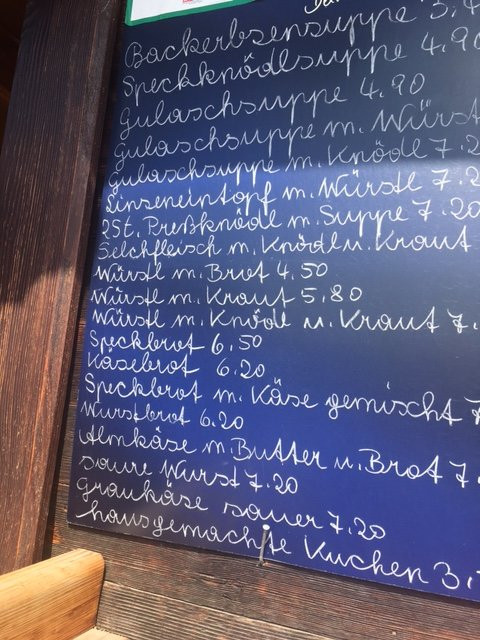 Backerbsensuppe 3,4
Speckknödlsuppe 4,90
Gulaschsuppe 4.90
Gulaschsuppe m. Würst
Gulaschsuppe m. Knödl 7.2
Linseneintopf m. Würstl 7.2
2St. Preßknödl m. Suppe 7.20
Selchfleisch m. Knödl u. Kraut
Würstl m. Brot 4.50
Würstl m. Kraut 5.80
Würstl m. Knödl u. Kraut 7.
Speckbrot 6.50
Käsebrot 6.20
Speckbrot m. Käse gemischt 7
Wurstbrot 6.20
Almkäse m. Butter u. Brot 7.
saure Wurst 7.20
Graukäse sauer 7.20
hausgemachte Kuchen 3,